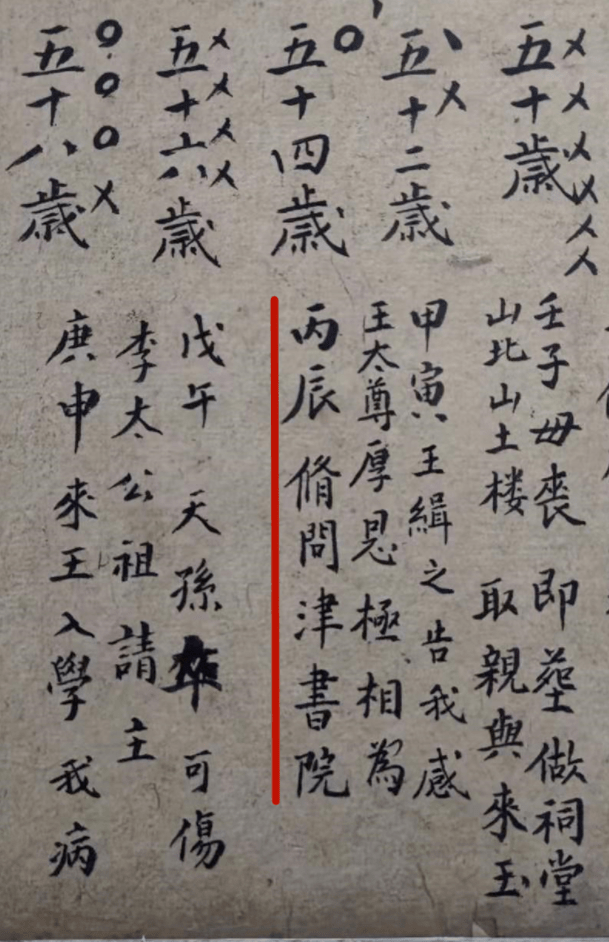 五十歲
壬子毋喪 即塟做祠堂
山北山土楼 取親與來玉
五十二歲
甲寅王緝之告我感
王太尊厚恩極相為
五十四歲
丙辰 脩問津書院
五十六歲
戊午 天孫卒可傷
李太公祖請主
五十八歲
庚申來王入學 我病